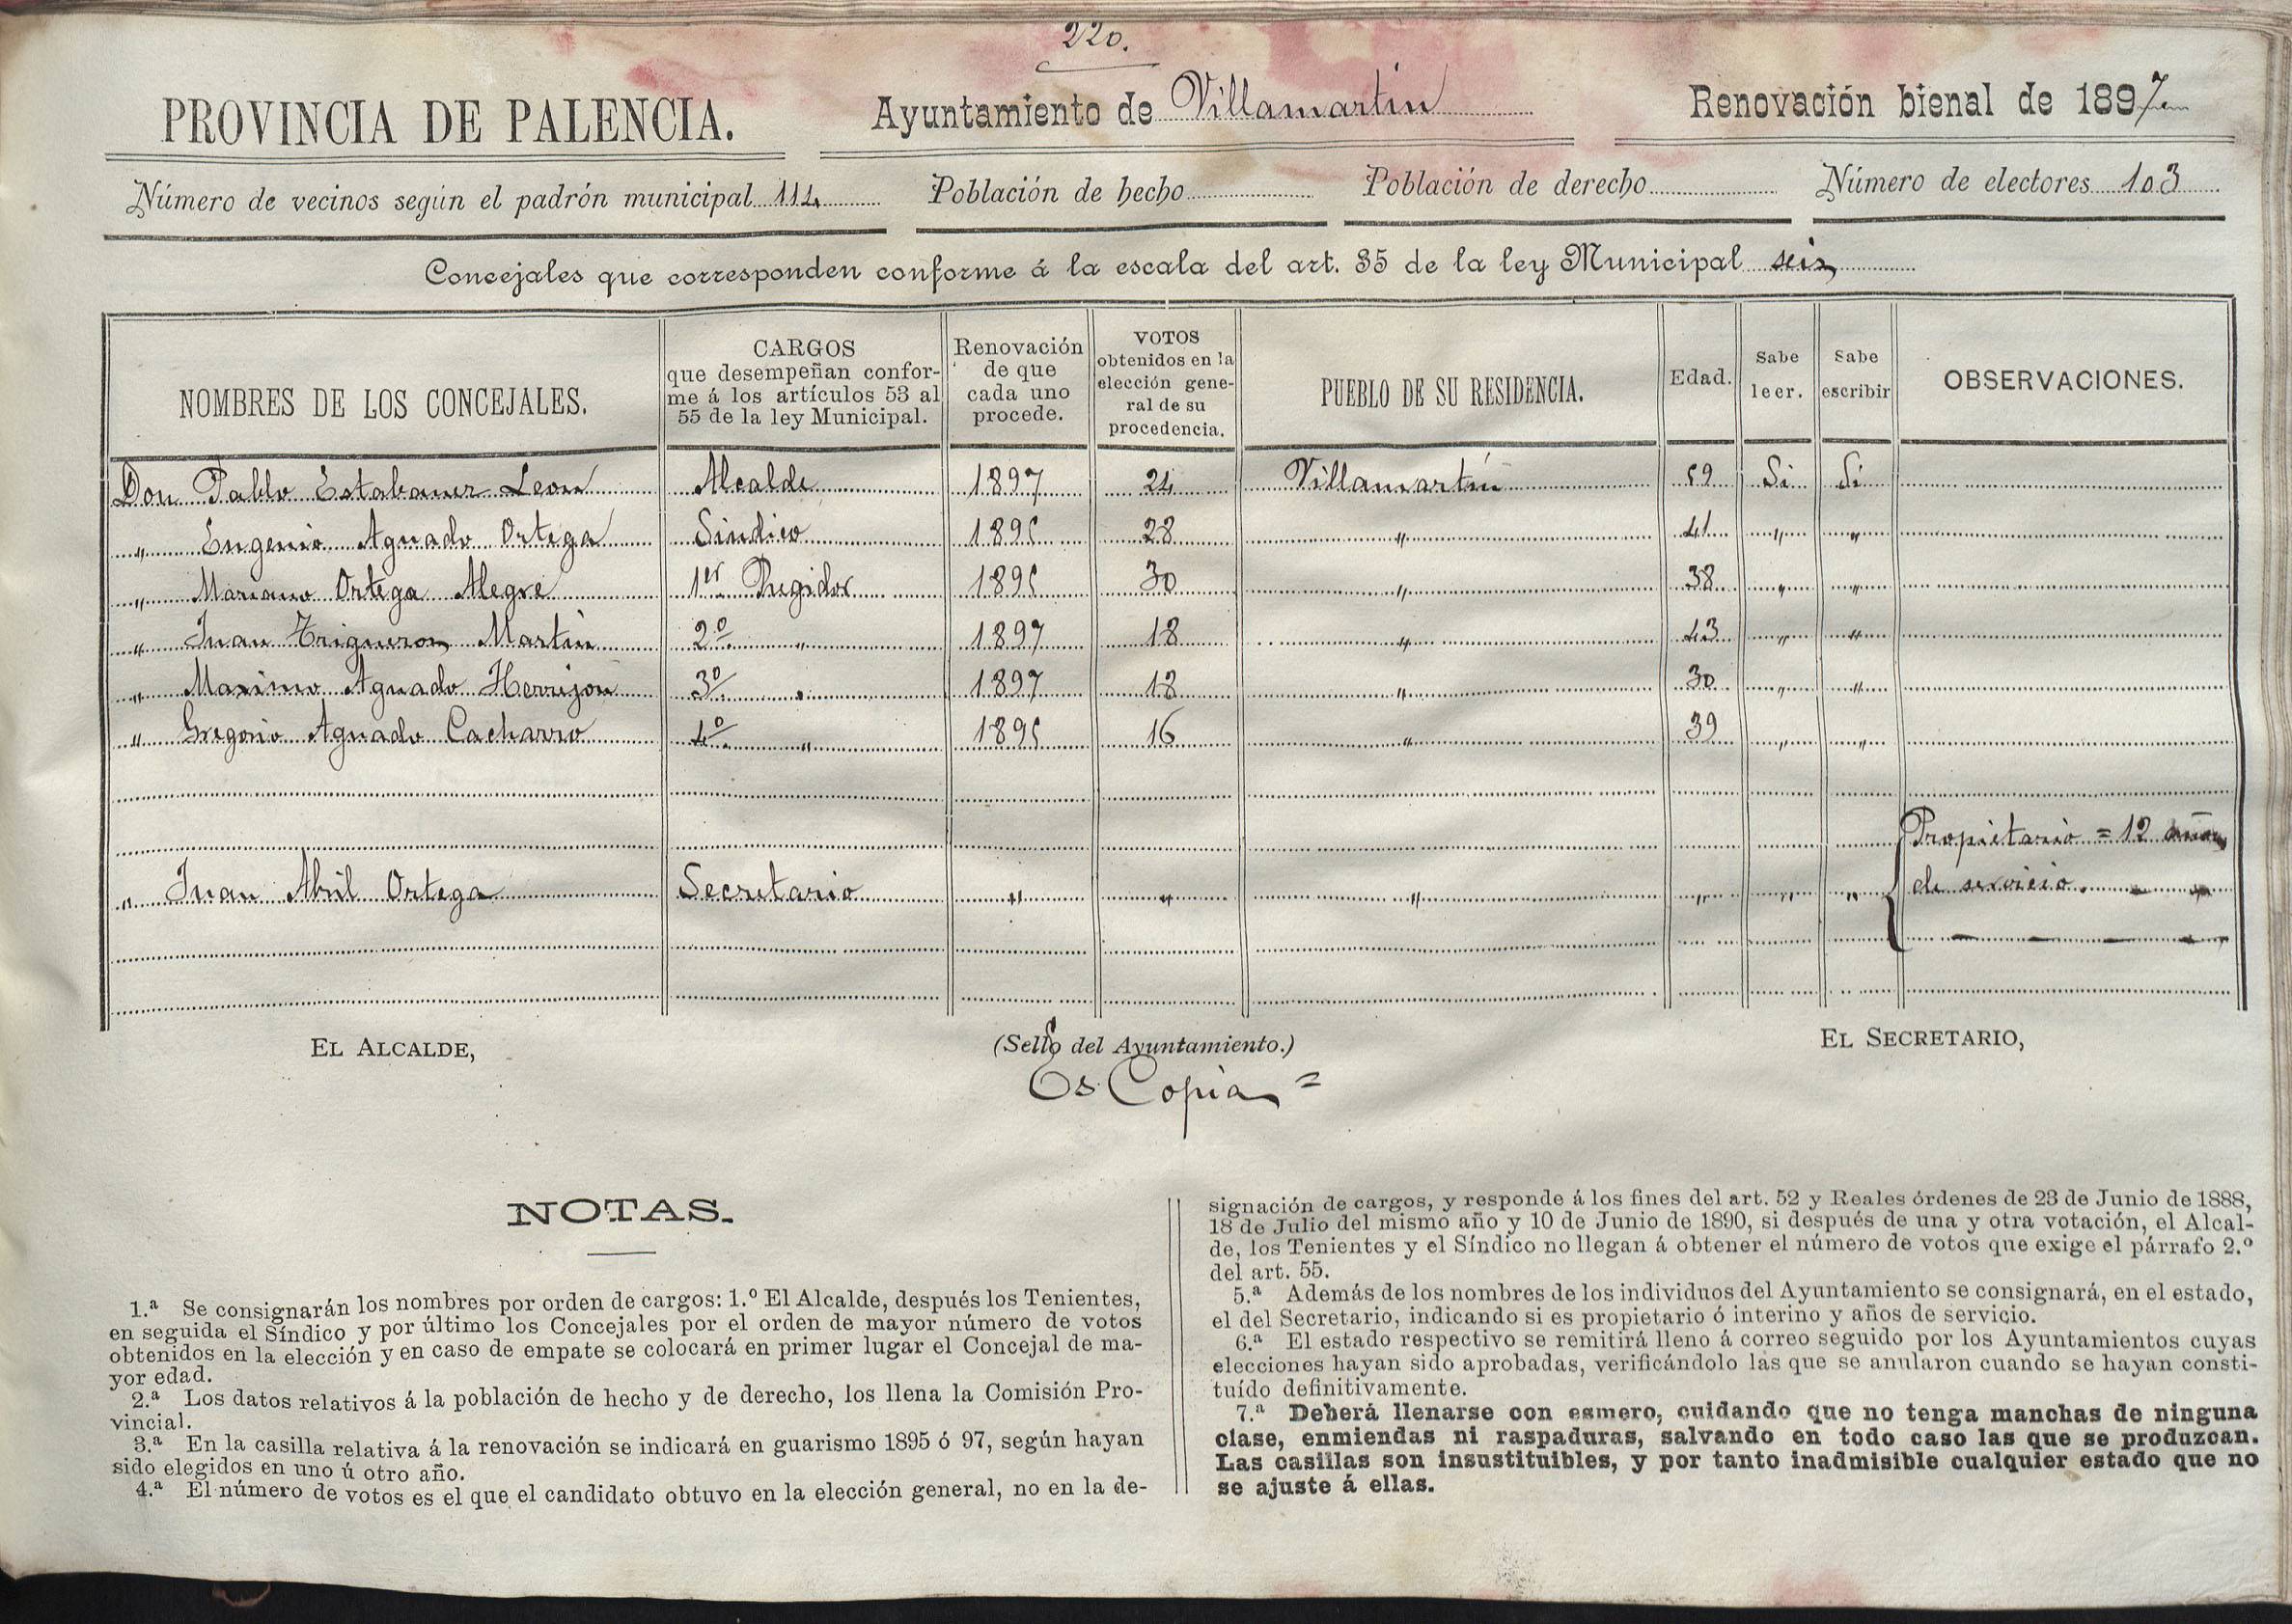 220.
PROVINCIA DE PALENCIA. Ayuntamiento de Villamartin Renovación bienal de 1897
Número de vecinos según el padrón municipal 114 Población de hecho Población de derecho Número de electores 103
Concejales que corresponden conforme á la escala del art. 35 de la ley Municipal seis
NOMBRES DE LOS CONCEJALES.
CARGOS
que desempeñan confor-
me á los artículos 53 al
55 de la ley Municipal.
Renovación
de que
cada uno
procede.
VOTOS
obtenidos en la
elección gene-
ral de su
procedencia.
PUEBLO DE SU RESIDENCIA.
Edad.
Sabe
leer.
Sabe
escribir
OBSERVACIONES.
Don Pablo Leon Alcalde 1897 24 Villamartín 59 Si Si
" Eugenio Aguado Ortega Sindico 1895 28 " 41 " "
" Mariano Ortega Alegre 1er Regidor 1895 30 " 38 " "
" Juan Trigueros Martin 2º " 1897 18 " 43 " "
" Maximo Aguado Herrejon 3º " 1897 18 " 30 " "
" Gregorio Aguado Cacharro 4º " 1895 16 " 39 " "
" Juan Abril Ortega Secretario " " " " " " Propietario = 12 años
de servicio.
EL ALCALDE, (Sello del Ayuntamiento.) EL SECRETARIO,
Es Copia =
NOTAS.
1.ª Se consignarán los nombres por orden de cargos: 1.º El Alcalde, después los Tenientes,
en seguida el Síndico y por último los Concejales por el orden de mayor número de votos
obtenidos en la elección y en caso de empate se colocará en primer lugar el Concejal de ma-
yor edad.
2.ª Los datos relativos á la población de hecho y de derecho, los llena la Comisión Pro-
vincial.
3.ª En la casilla relativa á la renovación se indicará en guarismo 1895 ó 97, según hayan
sido elegidos en uno ú otro año.
4.ª El número de votos es el que el candidato obtuvo en la elección general, no en la de-
signación de cargos, y responde á los fines del art. 52 y Reales órdenes de 23 de Junio de 1888,
18 de Julio del mismo año y 10 de Junio de 1890, si después de una y otra votación, el Alcal-
de, los Tenientes y el Síndico no llegan á obtener el número de votos que exige el párrafo 2.º
del art. 55.
5.ª Además de los nombres de los individuos del Ayuntamiento se consignará, en el estado,
el del Secretario, indicando si es propietario ó interino y años de servicio.
6.ª El estado respectivo se remitirá lleno á correo seguido por los Ayuntamientos cuyas
elecciones hayan sido aprobadas, verificándolo las que se anularon cuando se hayan consti-
tuído definitivamente.
7.ª Deberá llenarse con esmero, cuidando que no tenga manchas de ninguna
clase, enmiendas ni raspaduras, salvando en todo caso las que se produzcan.
Las casillas son insustituibles, y por tanto inadmisible cualquier estado que no
se ajuste á ellas.